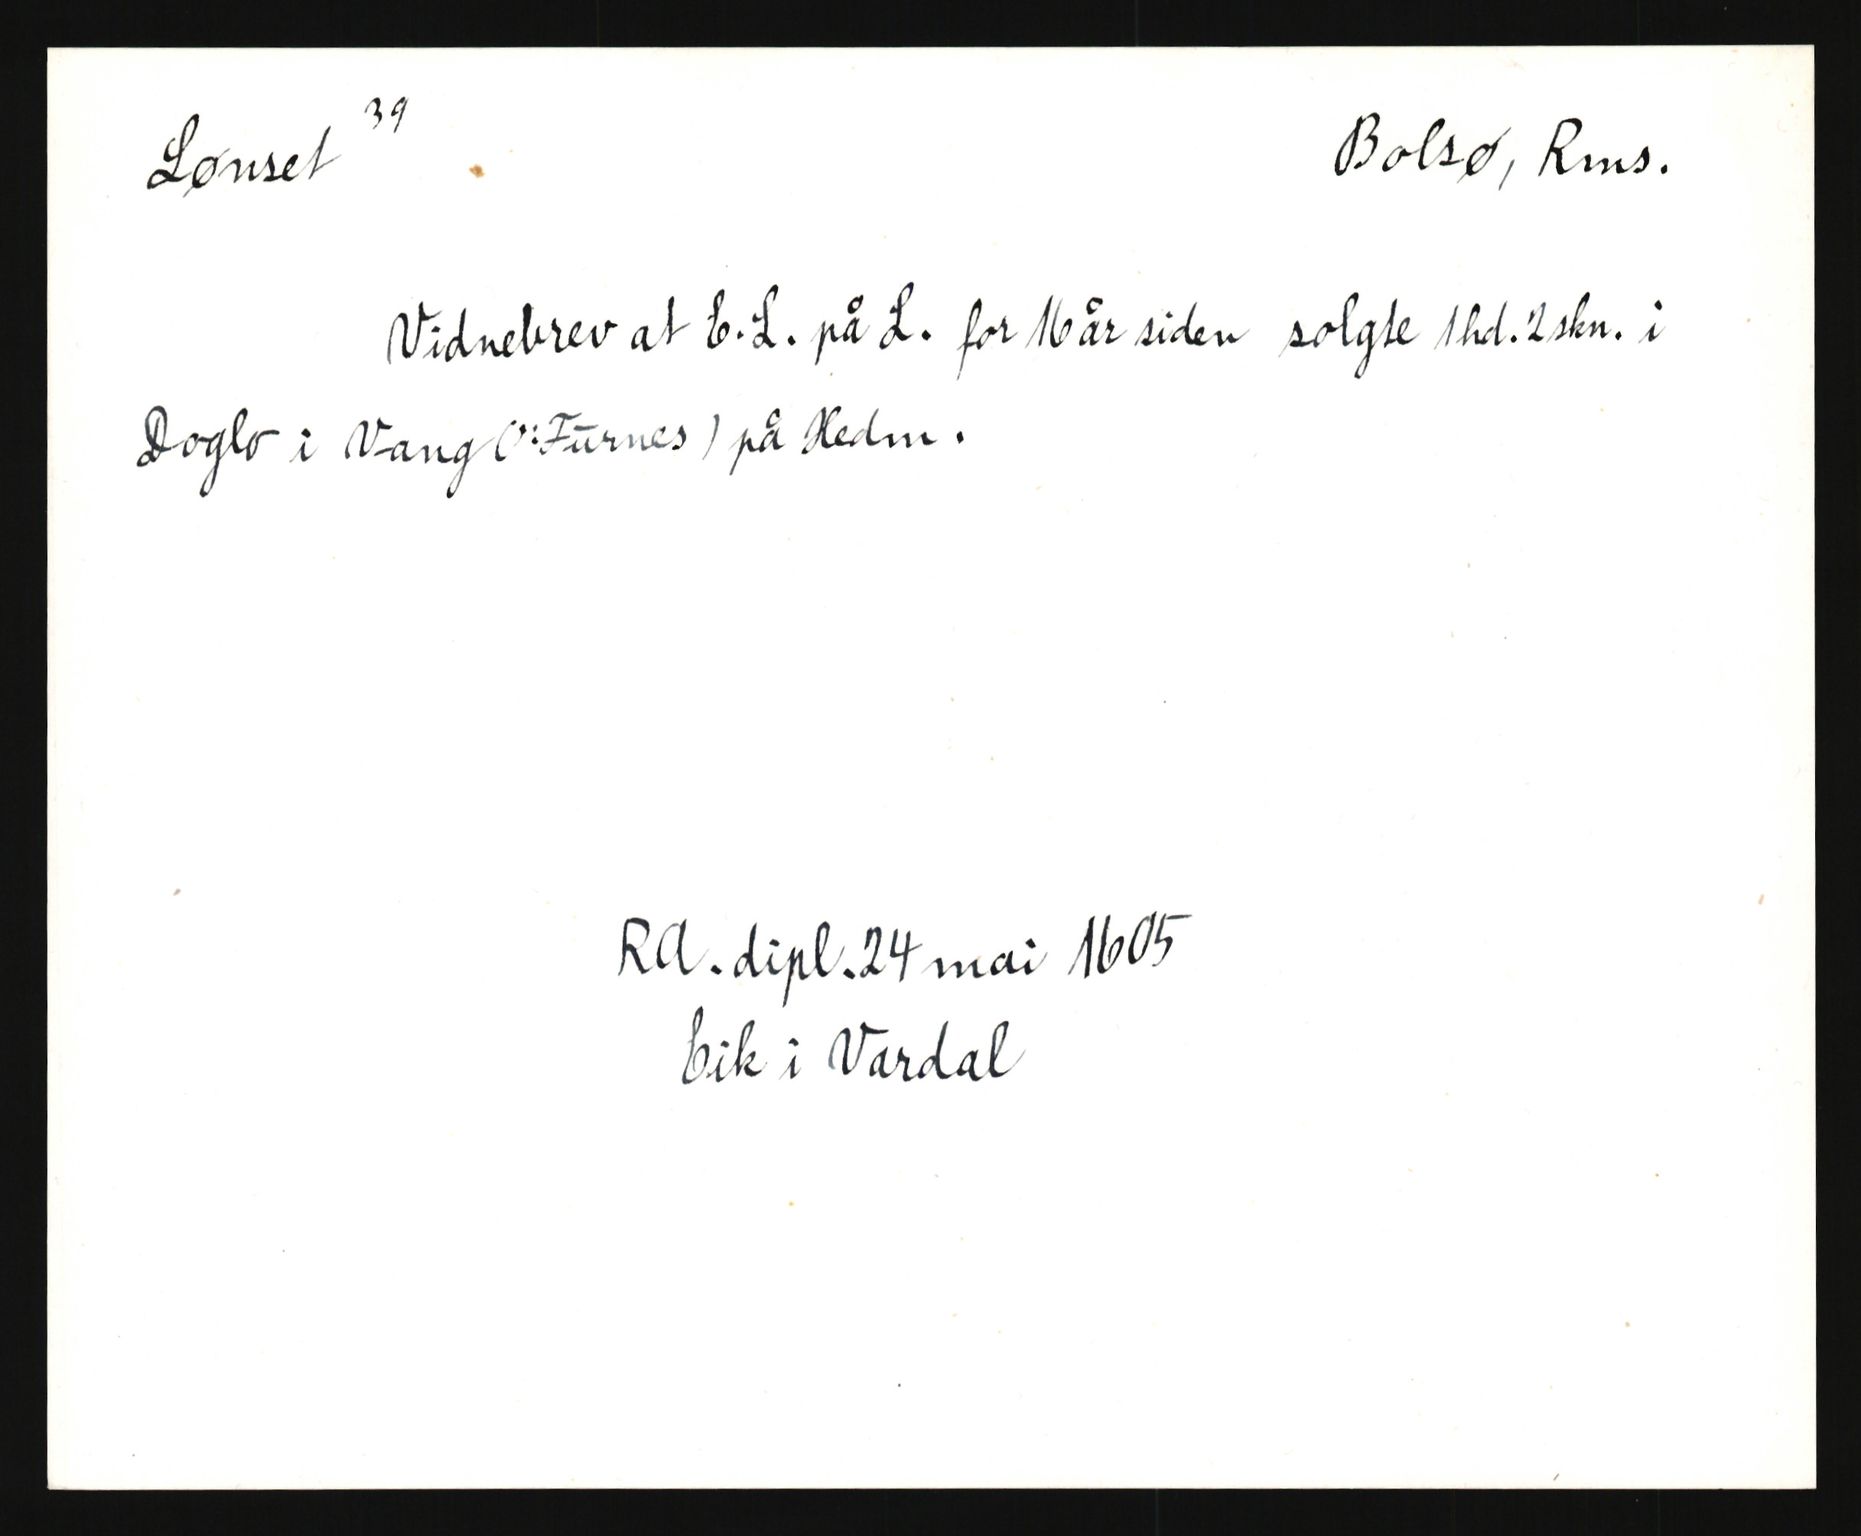 Lønset 39 Bolsø, Rms.
Vidnebrev at E.L. på L. for 16 år siden solgte 1 hd. 2 skn. i
Doglo i Vang (ɔ: Furnes) på Hedm.
RA. dipl. 24 mai 1605
Eik i Vardal